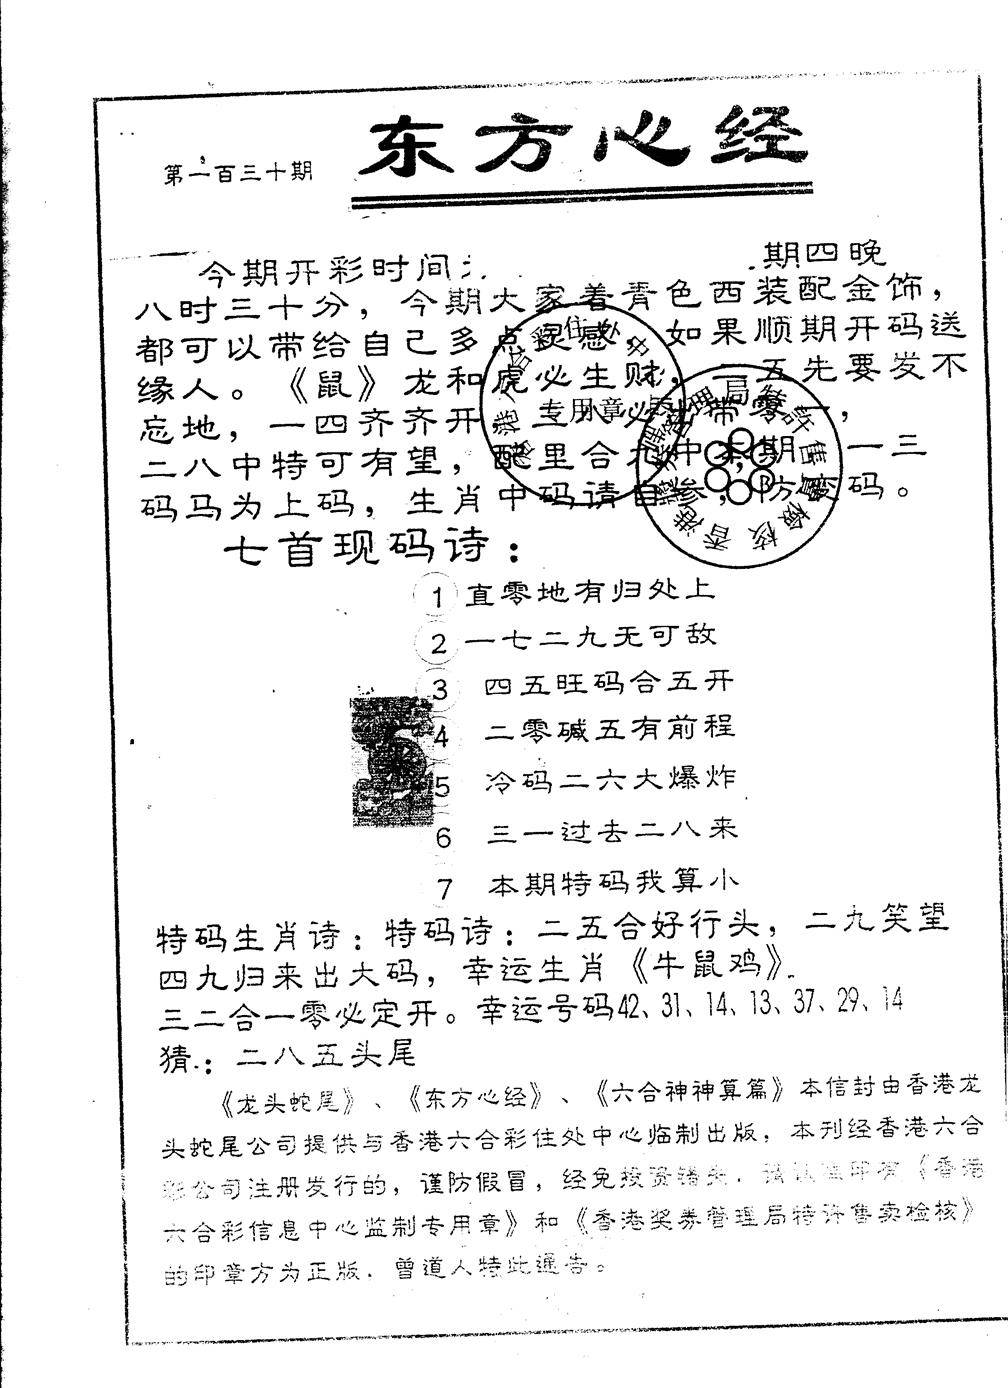 东方心经
第一百三十期
今期开彩时间 期四晚
八时三十分，今期大家着青色西装配金饰，
都可以带给自己多点灵感，如果顺期开码送
缘人。《鼠》龙和虎必生财，一五先要发不
忘地，一四齐齐开 必 带零一，
二八中特可有望，配里合九中本期 一三
码马为上码，生肖中码请自 防 码。
专用章
七首现码诗：
1 直零地有归处上
2 一七二九无可敌
3 四五旺码合五开
4 二零碱五有前程
5 冷码二六大爆炸
6 三一过去二八来
7 本期特码我算小
特码生肖诗：特码诗：二五合好行头，二九笑望
四九归来出大码，幸运生肖《牛鼠鸡》.
三二合一零必定开。幸运号码42、31、14、13、37、29、14
猜.：二八五头尾
《龙头蛇尾》、《东方心经》、《六合神神算篇》本信封由香港龙
头蛇尾公司提供与香港六合彩住处中心临制出版，本刊经香港六合
彩公司注册发行的，谨防假冒，经免投资错失. 《香港
六合彩信息中心监制专用章》和《香港奖券管理局特许售卖检核》
的印章方为正版. 曾道人特此通告。